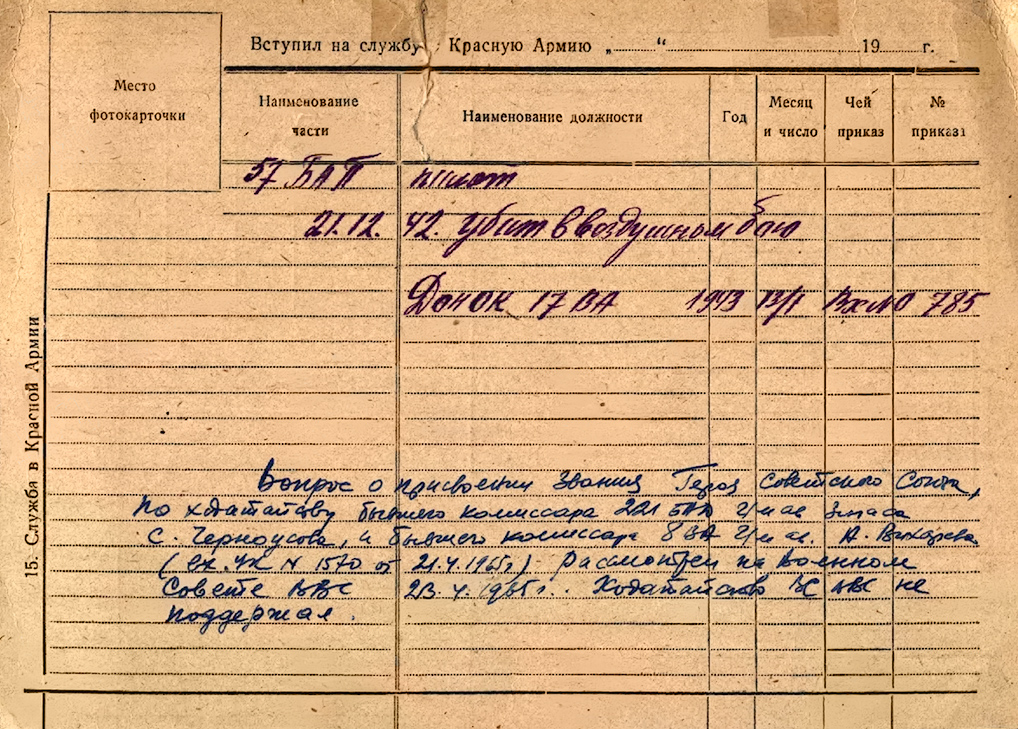 Вступил на службу Красную Армию „ “ 19 г.
Место
фотокарточки
Наименование
части
Наименование должности
Год
Месяц
и число
Чей
приказ
№
приказа
57 БАП пилот
21.12. 42. убит в воздушном бою
Донес 17 ВА 1943 13/I Вх № 785
15. Служба в Красной Армии
Вопрос о присвоении звания Героя Советского Союза,
по ходатайству бывшего комиссара 221 БАД г/м ав. запаса
С. Черноусова, и бывшего комиссара 8 ВА г/м ав. А. Вихорева
(вх. УК № 1570 от 21.4.1965 г.) рассмотрен на Военном
Совете ВВС 23.4.1965 г. Ходатайство ВС ВВС не
поддержал.